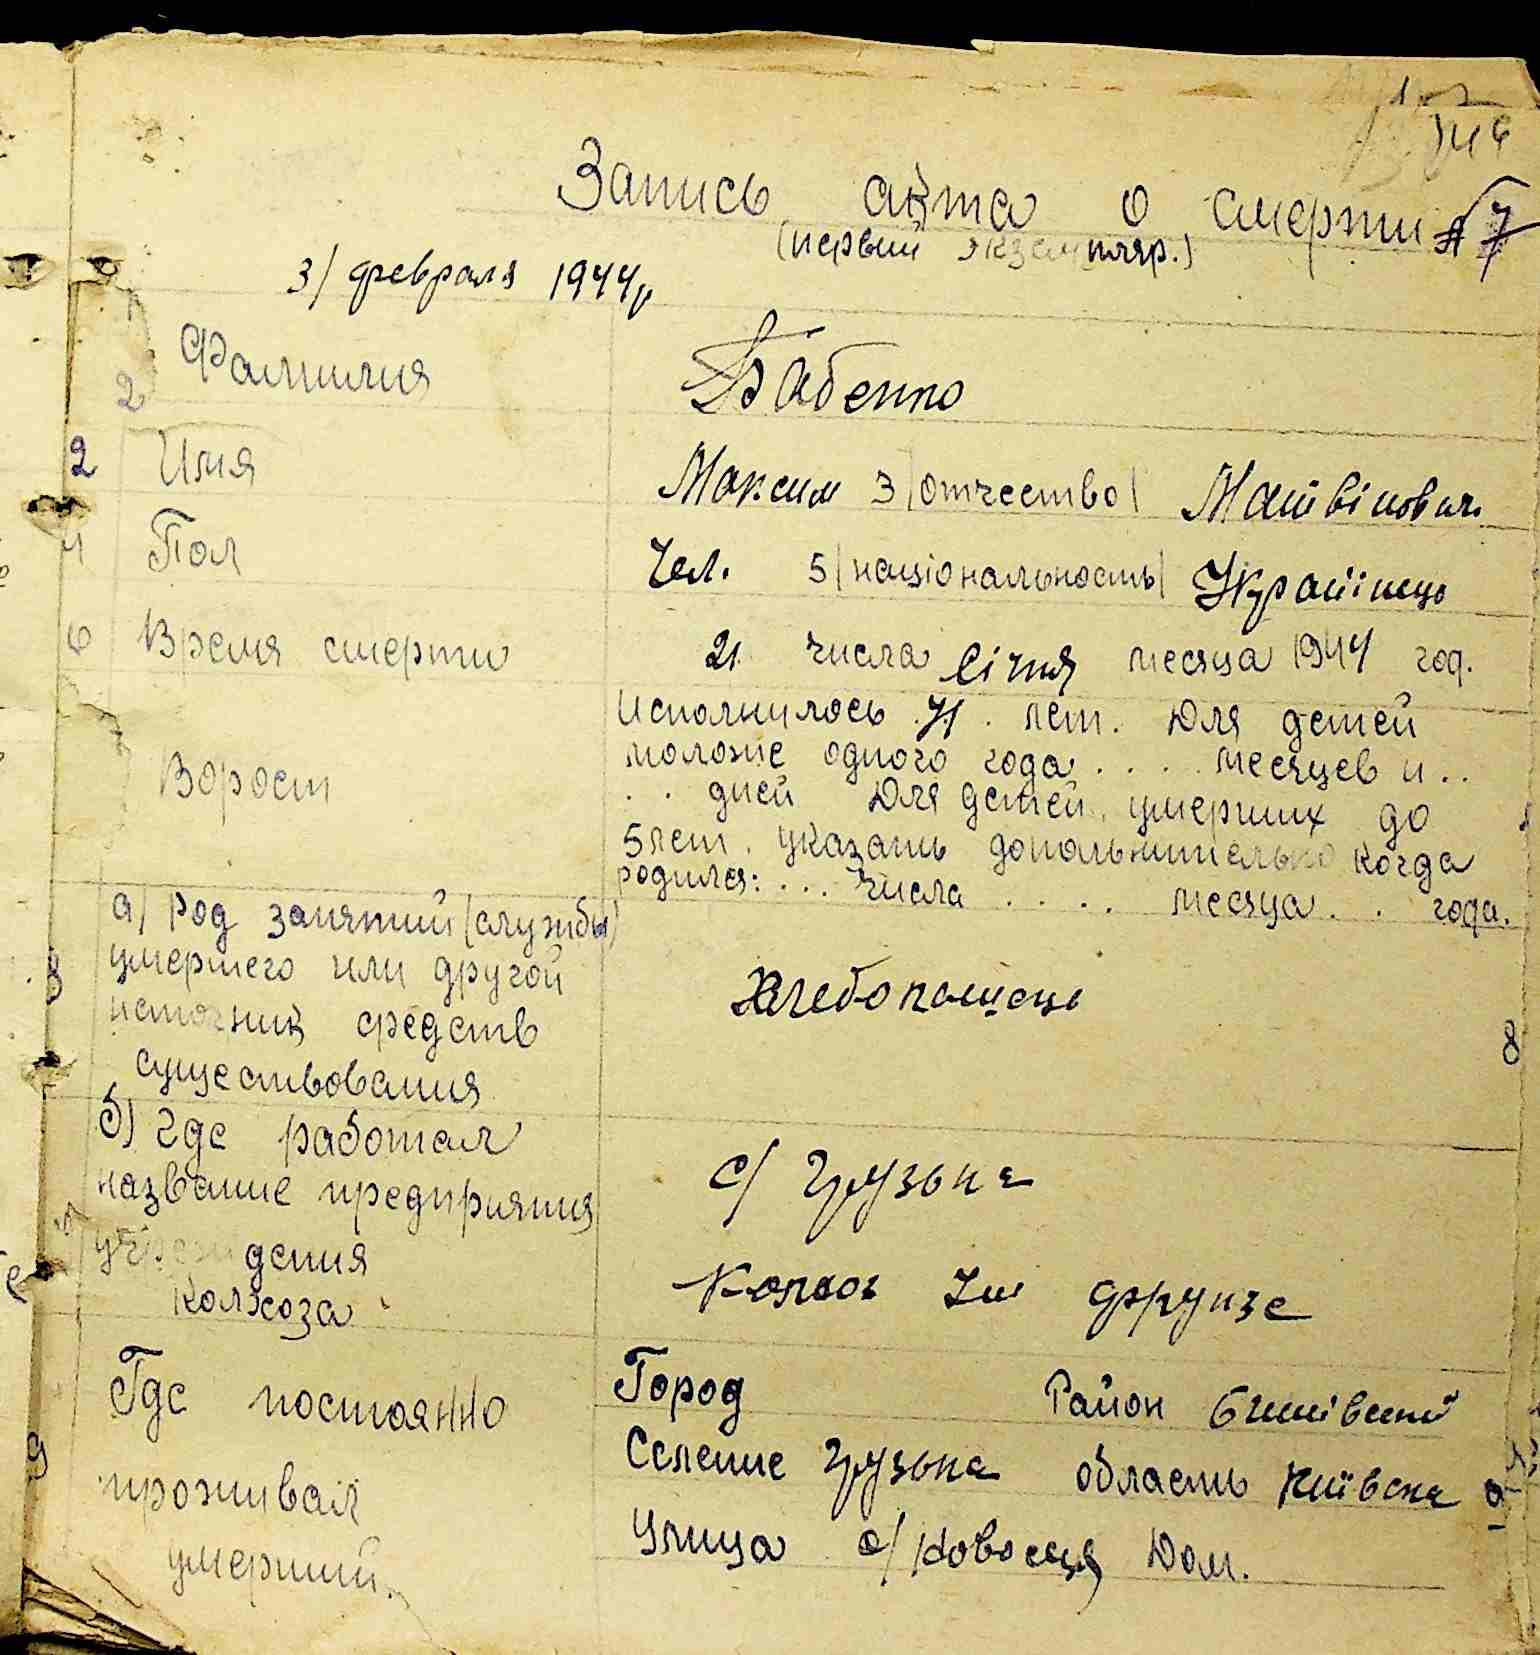 146
Запись акта о смерти № 7
(первый экземпляр.)
3/ февраля 1944г
2 Фамилия Бабенко
2 Имя Максим 3/отчество/ Матвіиович.
4 Пол Чел. 5/національность/ Українець
6 Время смерти 21 числа січня месяца 1944 год.
Ворост
Исполнилось 71 лет. Для детей
моложе одного года . . . . месяцев и . .
. . дней Для детей, умерших до
5 лет. указать дополнительно когда
родился: . . . числа . . . . месяца . . года.
8 а) Род занятий (службы)
умершего или другой
источник средств
существования
Хлебопашець
8
б) Где работал
название предприятия
учреждения
колхоза
с/ Грузьке
Колхоз Им Фрунзе
9 Где постоянно
проживал
умерший.
Город Район
Селение Грузьке область Київська
Улица Дом.